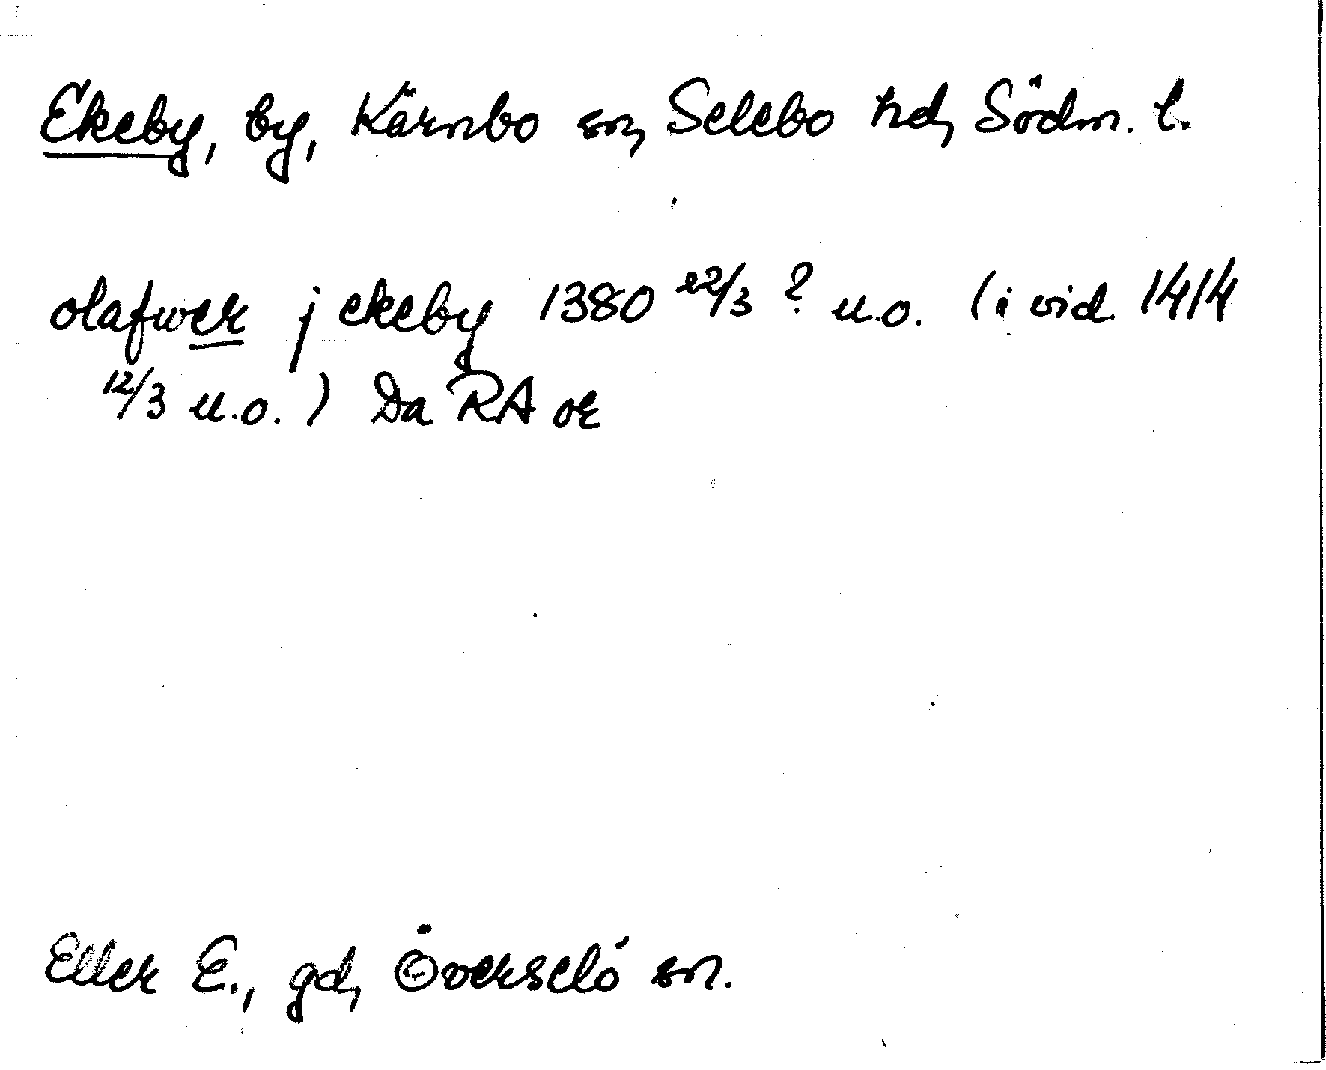 Ekeby, by, Kärnbo sn, Selebo hd, Södm. l.
olafwer j ekeby 1380 22/3 ? u.o. (i vid. 1414
12/3 u.o.) Da RA or
Eller E., gd, Överselö sn.